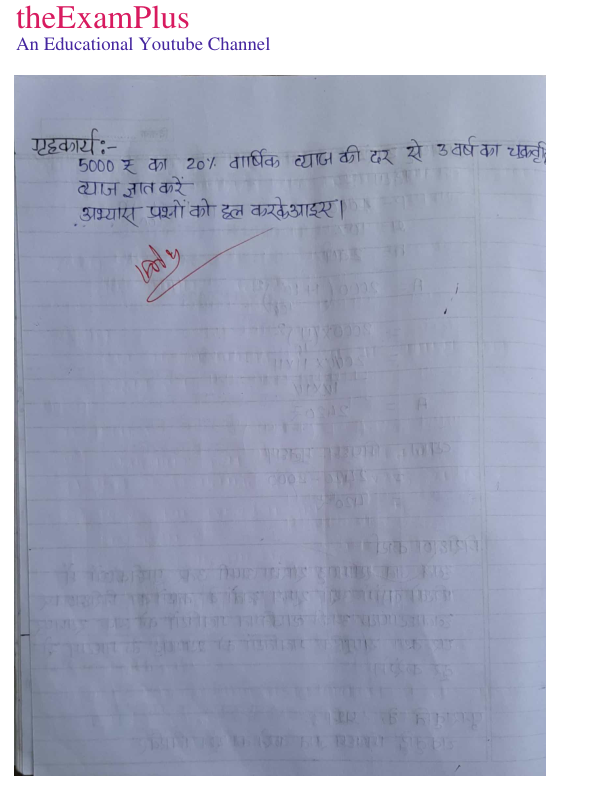 theExamPlus
An Educational Youtube Channel
गृहकार्य:-
5000 ₹ का 20% वार्षिक ब्याज की दर से 3 वर्ष का चक्रवृद्धि
ब्याज ज्ञात करें
अभ्यास प्रश्नों को हल करके आइए।